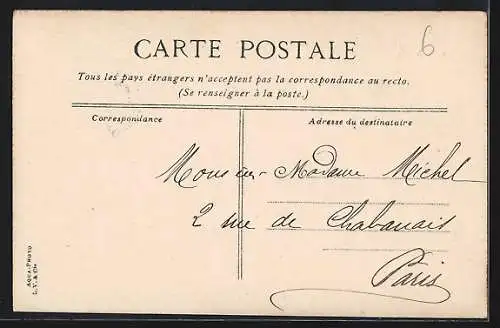 6
CARTE POSTALE
Tous les pays étrangers n'acceptent pas la correspondance au recto.
(Se renseigner à la poste.)
Correspondance
Adresse du destinataire
Monsieur Madame Michel
2 rue de Chabanais
Paris
AQUA-PHOTO
L. V. & Cie